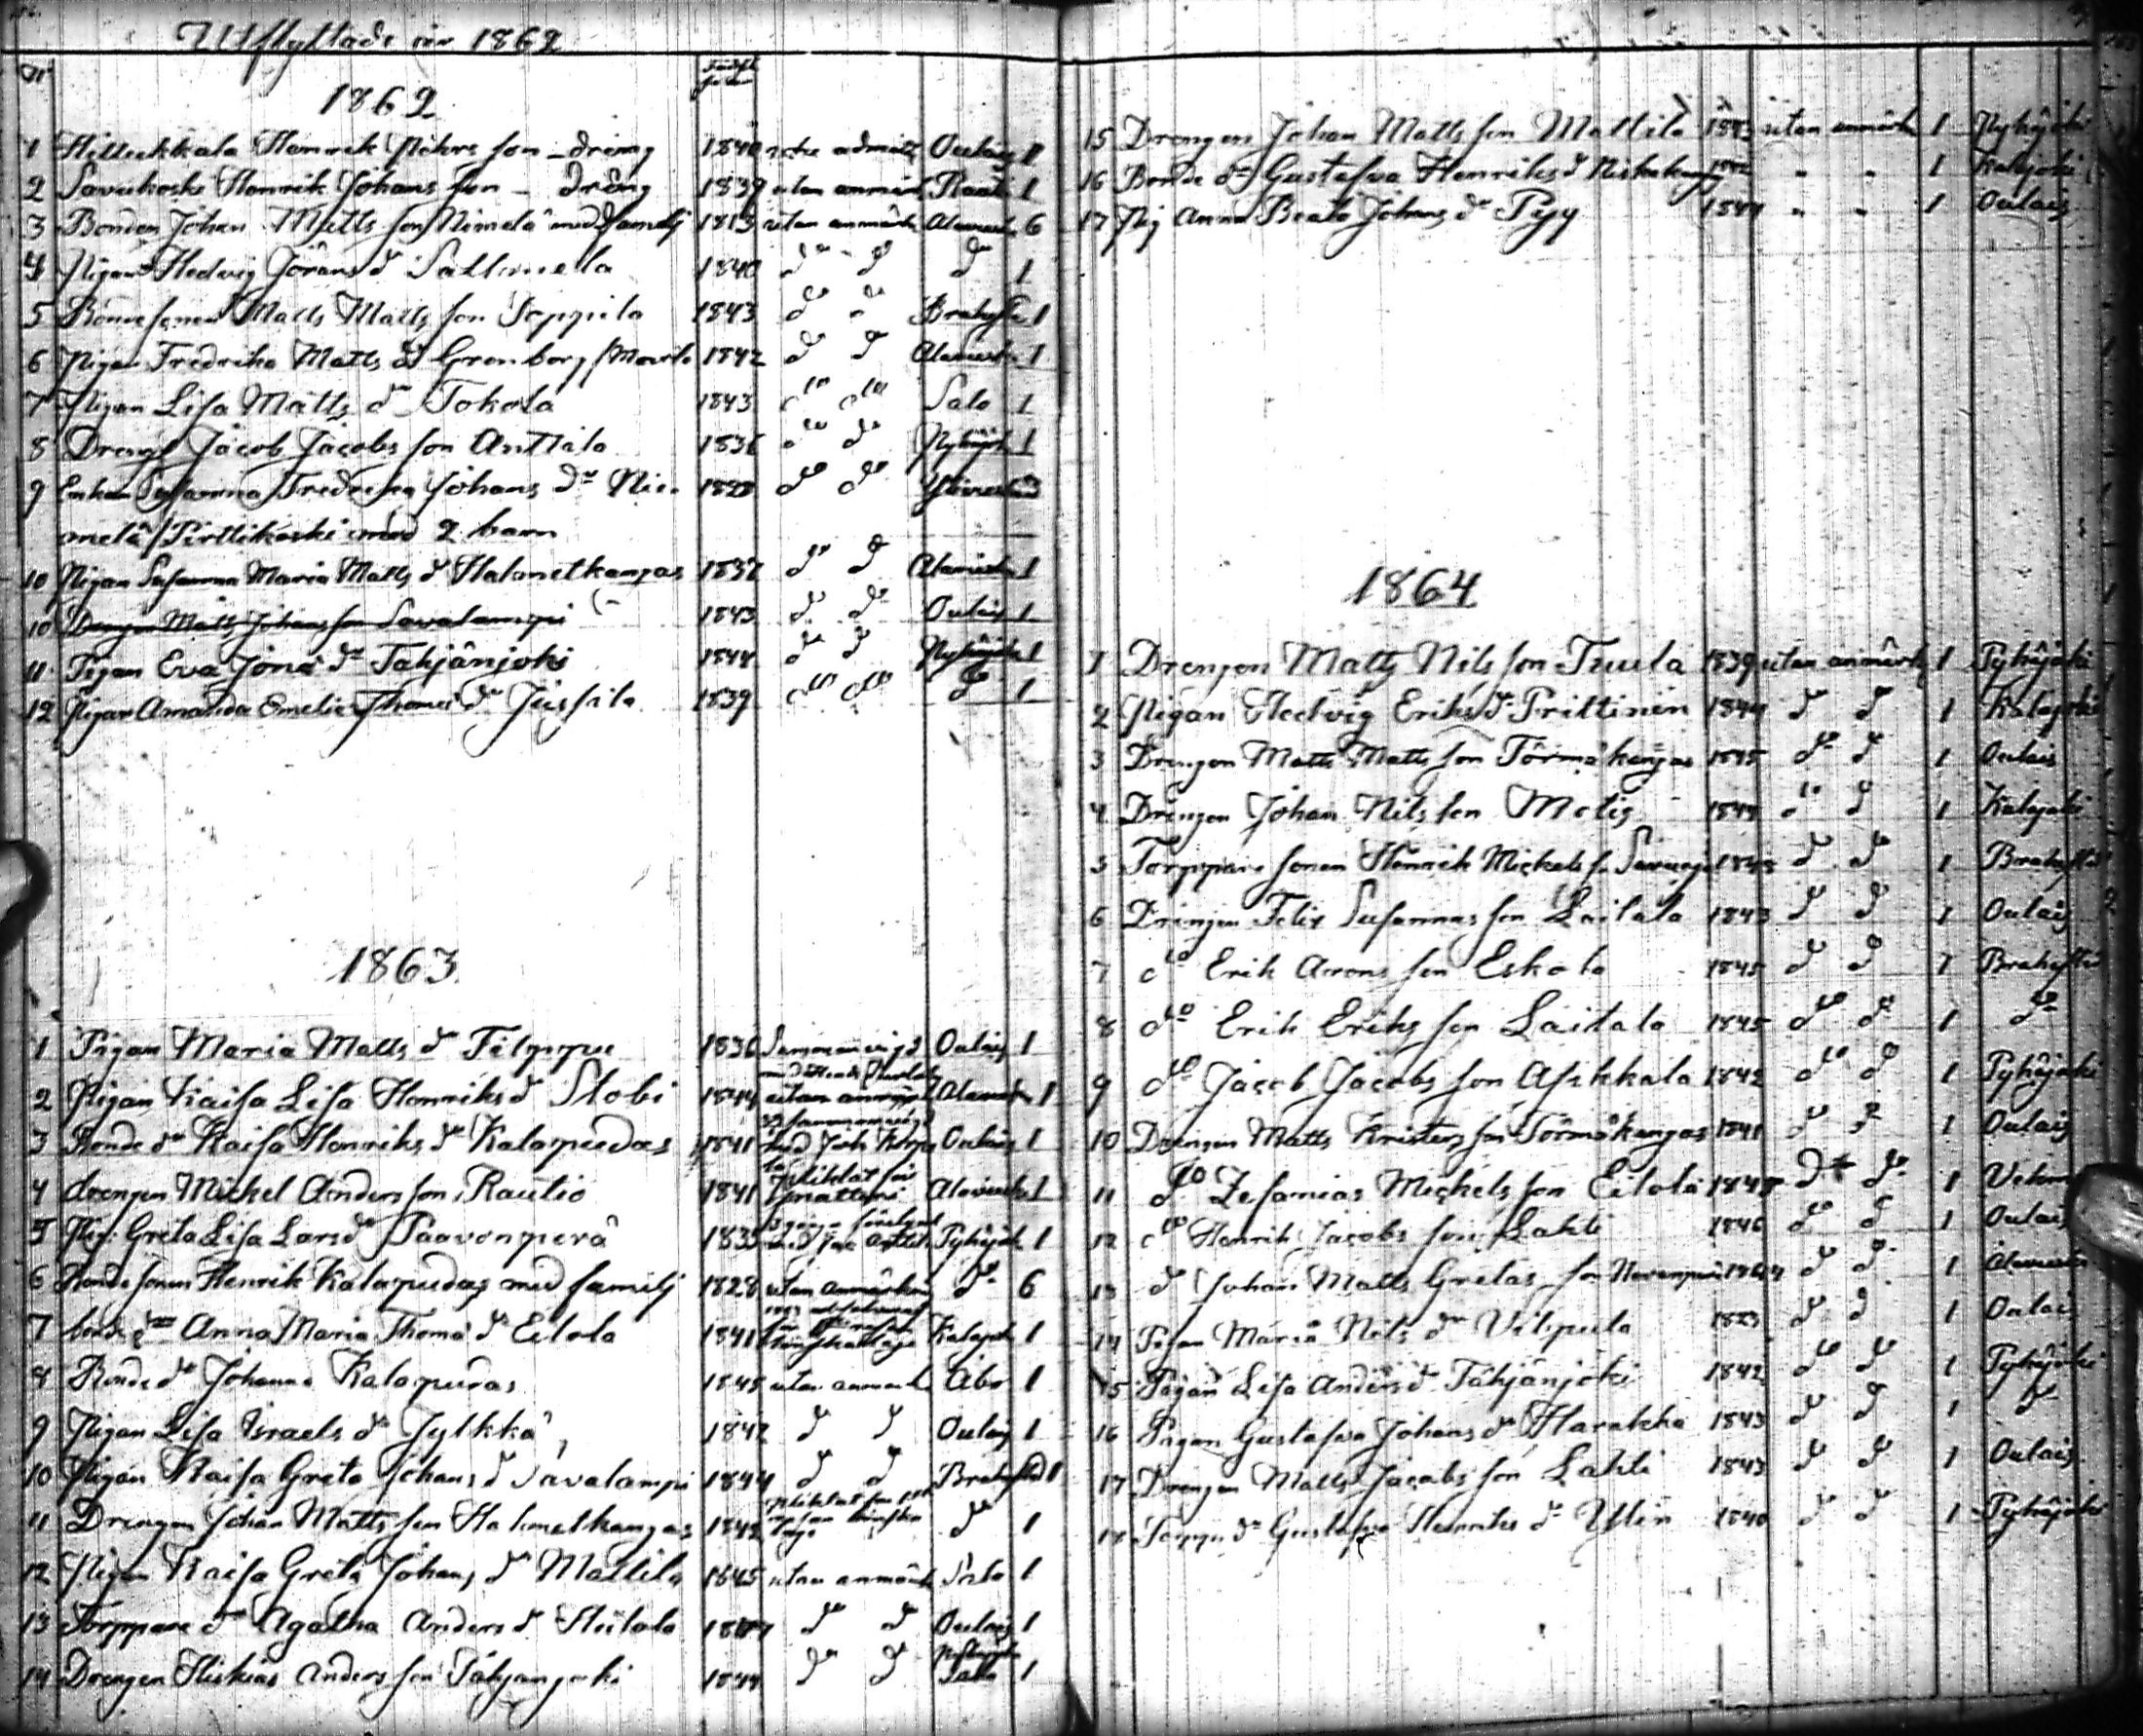 Utflyttade år 1862
N
1862
1 Henrik son - dräng 1840 Oulais 1
2 Savukoski Henrik Johans son - dräng 1839 utan anmärk 1
3 Bonden Johan Matts son Niemelä med familj 1813 utan anmärk Alavieska 6
4 Pigan Hedvig Görans dr 1840 do do do 1
5 Bondesonen Matts Matts son Soppila 1843 do do Brahest 1
6 Pigan Fredrika Matts dr Grenborg / 1842 do do Alavieska 1
7 Pigan Lisa Matts dr Tokola 1843 do do Salo 1
8 Dreng Jacob Jacobs son Anttila 1836 do do Pyhäjok 1
9 Enkan Susanna Fredrika Johans dr Nie- do do
melä / Pirttikoski med 2 barn
10 Pigan Susanna Maria Matts dr Halmetkangas 1837 do do Alavieska 1
10 Drengen Matts Johans son Savalampi 1843 do do Oulais 1
11 Pigan Eva Jona dr Tähjänjoki 1844 do do Pyhäjok 1
12 Pigan Amanda Emelia Thomas dr Jussila 1839 do do do 1
1863
1 Pigan Maria Matts dr Filppu 1836 Oulais 1
2 Pigan Kaisa Lisa Henriks dr Stobi 1844 utan anmärk Alavieska 1
3 Bonde dr Kaisa Henriks dr Kalapudas 1841 med Joh Oulais 1
4 drengen Mickel Anders son Rautio 1841 Alavieska 1
5 Pig. Greta Lisa Lars dr Paavonperä 1835 Pyhäjok 1
6 Bondesonen Henrik Kalapudas med familj 1828 utan anmärkn do 6
7 bonde dr Anna Maria Thoma dr Eilola 1841 Kalajok 1
8 Bonde dr Johanna Kalapudas 1845 utan anmärk Åbo 1
9 Pigan Lisa Israels dr Jylkkä 1842 do do Oulais 1
10 Pigan Kaisa Greta Johans dr Savalampi 1844 do do Brahestad 1
11 Drengen Johan Matts son Halmetkangas 1842 do 1
12 Pigan Kaisa Greta Johans dr Mattila 1845 utan anmärk Salo 1
13 Torppare dr Agatha Anders dr Heitala do do Oulais 1
14 Drengen Hiskias Anders son Tähjänjoki 1844 do do Salo 1
15 Drengen Johan Matts son Mattila utan anmärk 1 Pyhäjoki
16 Bonde dr Gustafva Henriks dr Niskakangas " " 1 Kalajoki
17 Pig Anna Beata Johans dr Pyy 1844 " " 1 Oulais
1864
1 Drengen Matts Nils son Tuula 1839 utan anmärk 1 Pyhäjoki
2 Pigan Hedvig Eriks dr Prittinen 1844 do do 1 Kalajoki
3 Drengen Matts Matts son Törmäkangas 1845 do do 1 Oulais
4 Drengen Johan Nils son Metis do do 1 Kalajoki
5 Torppare sonen Henrik Mickels s. do do 1 Brahestad
6 Drengen Felix Susannas son Laitala 1843 do do 1 Oulais
7 do Erik Arons son Eskola 1845 do do 1 Brahestad
8 do Erik Eriks son Laitala 1845 do do 1 do
9 do Jacob Jacobs son Asikkala 1842 do do 1 Pyhäjoki
10 Drengen Matts Kristers son Törmäkangas 1841 do do 1 Oulais
11 do Zefanias Mickels son Eilola do do 1
12 do Henrik Jacobs son Lahti 1846 do do 1 Oulais
13 do Johan Matts Gretas son do do 1 Alavieska
14 Pigan Maria Nils dr Vilipula 1823 do do 1 Oulais
15 Pigan Lisa Anders dr Tähjänjoki 1842 do do 1 Pyhäjoki
16 Pigan Gustafva Johans dr Harakka 1843 do do 1 do
17 Drengen Matts Jacobs son Lahti 1843 do do 1 Oulais
18 Torpp. dr Gustafva Henriks dr Ylin 1840 do do 1 Pyhäjoki